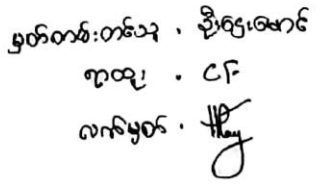 မှတ်တမ်းတင်သူ . ဦးဌေးမောင်
ရာထူး . ငဖ
လက်မှတ် .